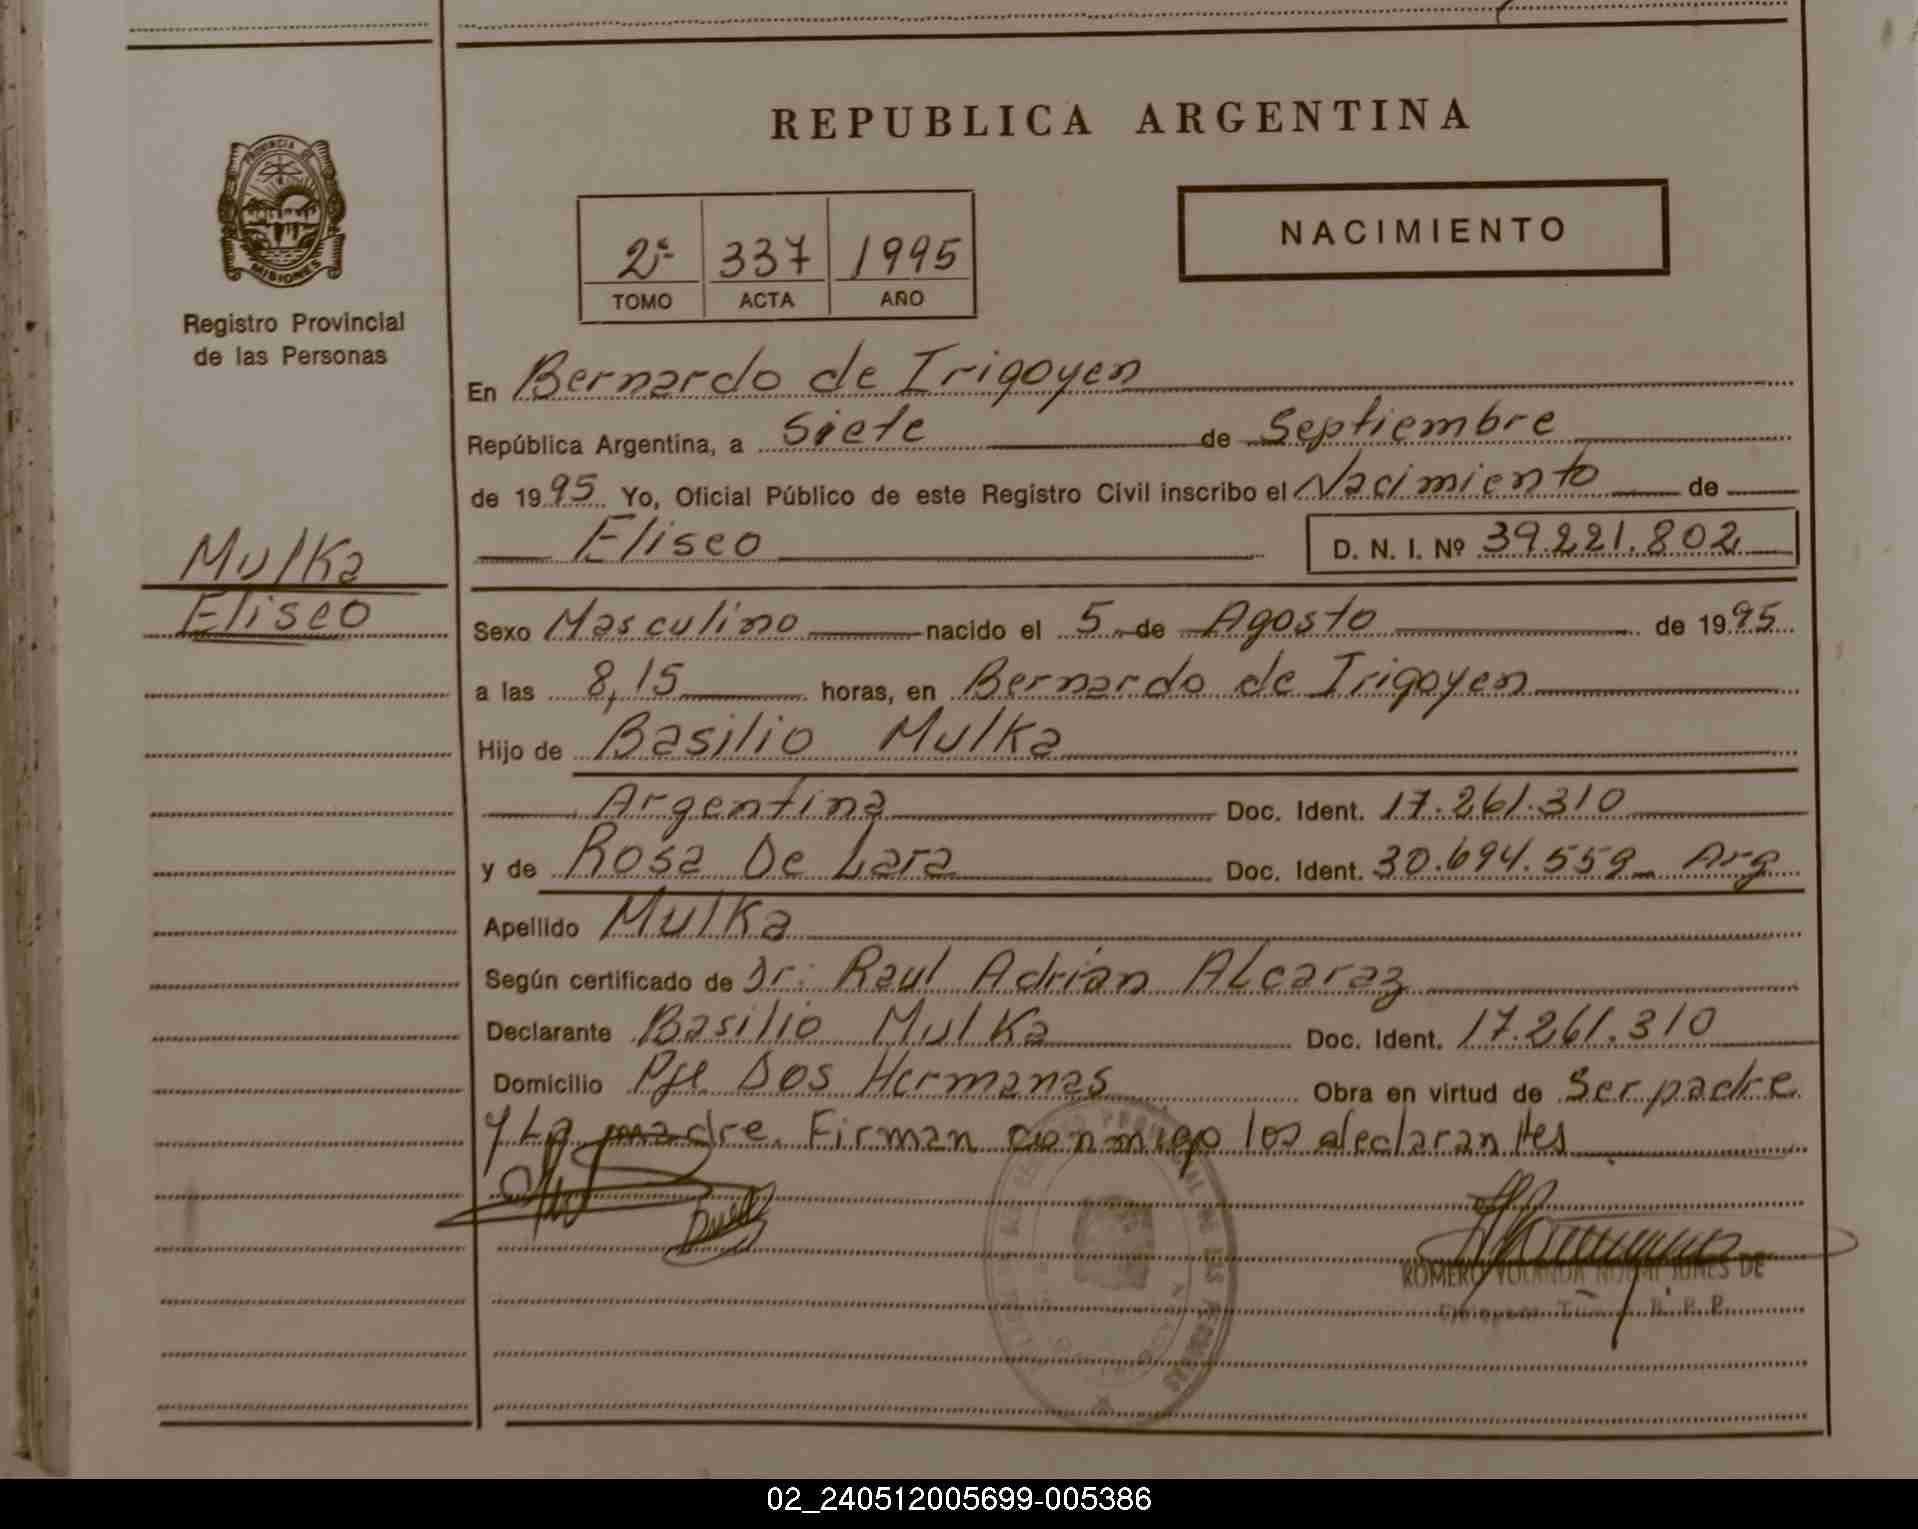 REPUBLICA ARGENTINA
PROVINCIA DE
MISIONES
Registro Provincial
de las Personas
2º 337 1995
TOMO ACTA AÑO
NACIMIENTO
En Bernardo de Irigoyen
República Argentina, a Siete de Septiembre
de 1995 Yo, Oficial Público de este Registro Civil inscribo el Nacimiento de
Eliseo D. N. I. Nº 39.221.802
Mulka
Eliseo
Sexo Masculino nacido el 5 de Agosto de 1995
a las 8,15 horas, en Bernardo de Irigoyen
Hijo de Basilio Mulka
Argentina Doc. Ident. 17.261.310
y de Rosa De Lara Doc. Ident. 30.694.559 Arg
Apellido Mulka
Según certificado de Dr: Raul Adrián Alcaraz
Declarante Basilio Mulka Doc. Ident. 17.261.310
Domicilio Pje Dos Hermanas Obra en virtud de Ser padre
y La madre. Firman conmigo los declarantes
ROMERO YOLANDA DE
02_240512005699-005386